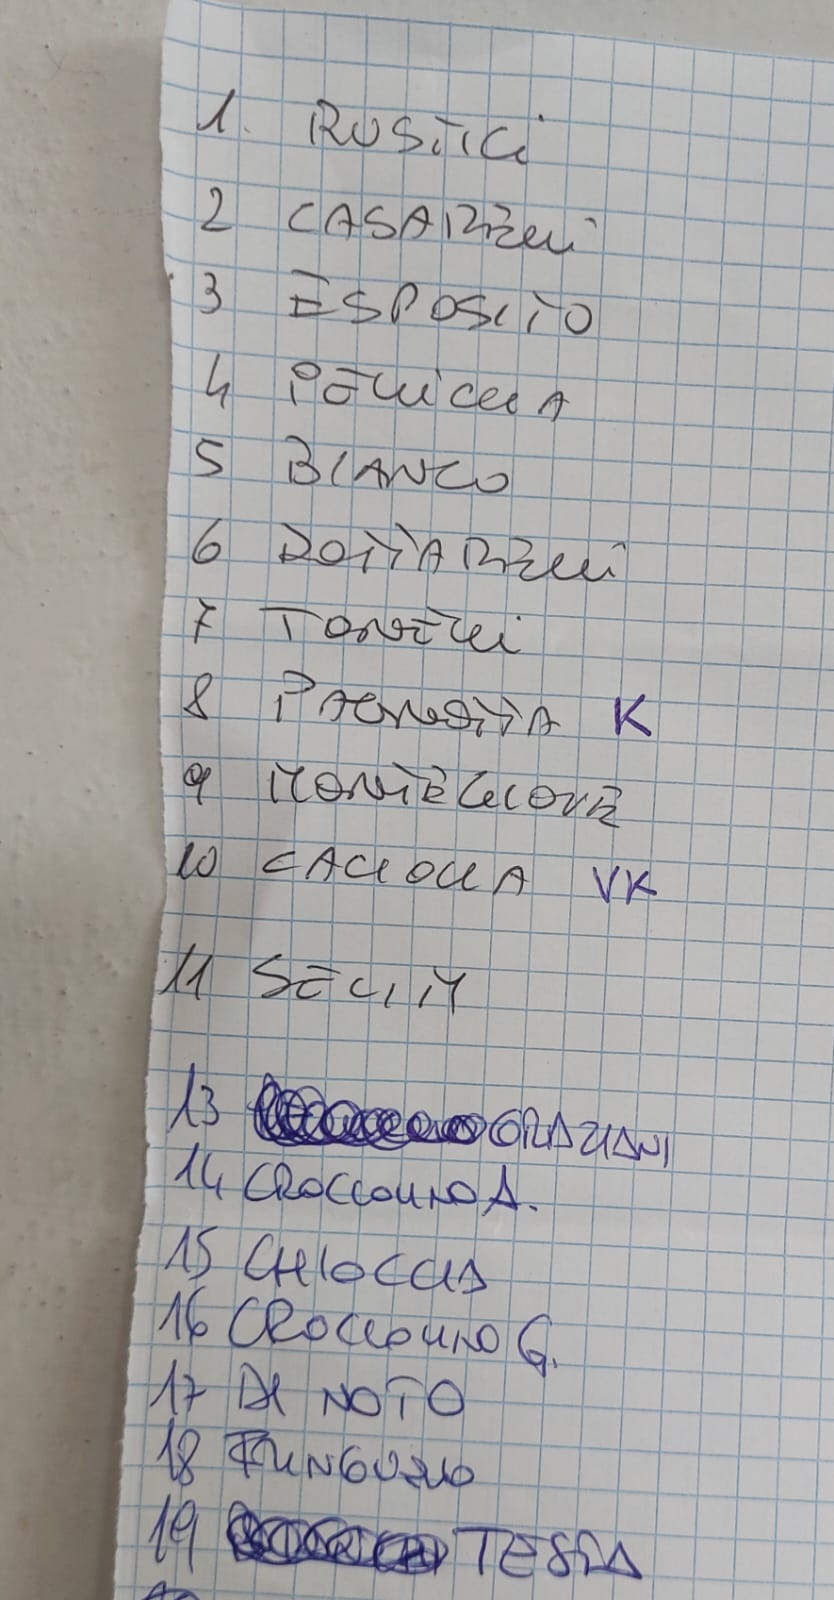 1. RUSTICI
2 CASAREZLLI
3 ESPOSITO
4 PELLICCIA
5 BIANCO
6
7 TONELLI
8 PAGNOTTA K
9 MONTECALOVE
10 CACIOLLA VK
11 SELIM
13 GRAZIANI
14 CROCCOLINO A.
15 CHIOCCIA
16 CROCCOLINO G.
17 DI NOTO
18
19 TESTA